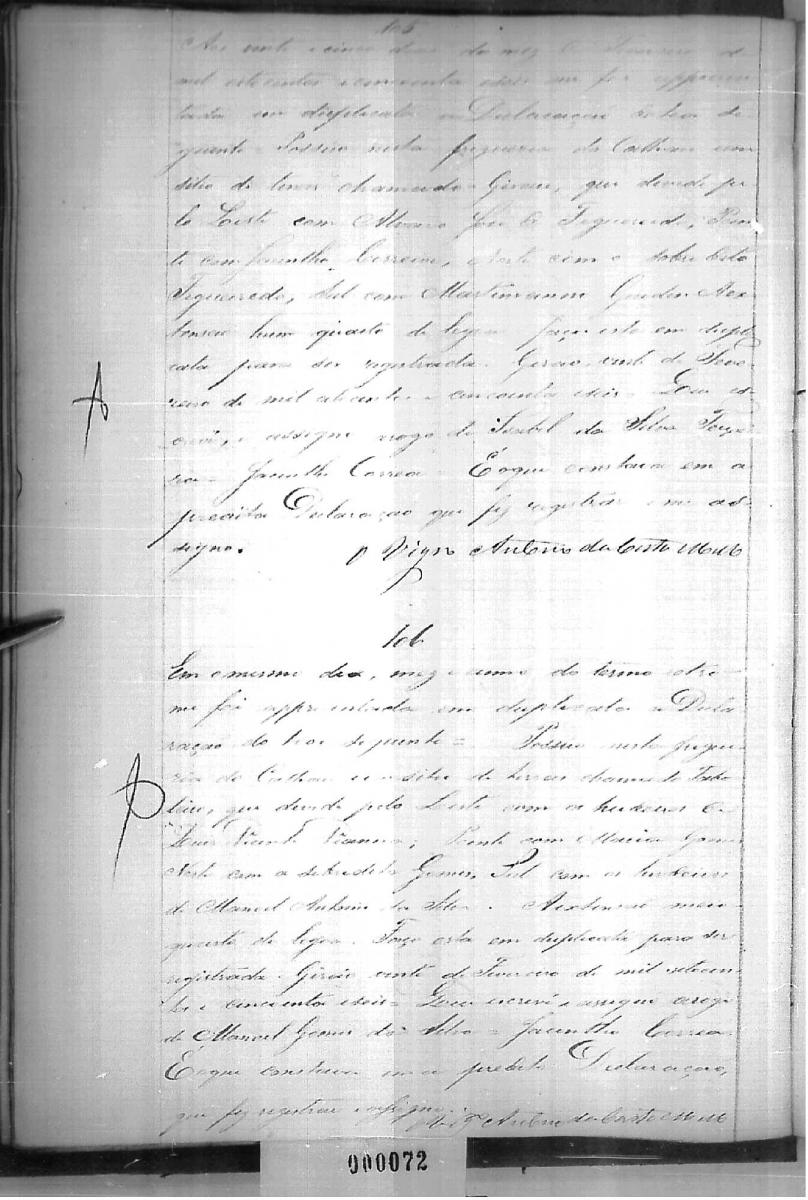 105
Aos vinte e cinco dias do mez de Fevereiro de
mil oitocentos e cincoenta e seis me foi apprezen
tada em duplicata a Declaração do theor se
guinte = Possuo nesta freguezia do Cathau um
sitio de terras chamado Girau, que devide pe
lo Leste com Alvaro José de Figueiredo, Poen
te com Jacintho Correia, Norte com o sobredito
Figueiredo, Sul com Martimianno A ex
tenção hum quarto de legoa faço esta em dupli
cata para ser registrada. Girao vinte de Feve
reiro de mil oitocentos e cincoenta e seis = Que es
crevi, e assignei a rogo de Izabel da Silva
= Jacintho Correa = É o que constava em a
predita Declaração que fiz registrar e me as
signo. O Vigro Antonio da Costa
106
Em o mesmo dia, mez e anno do termo retro
me foi apprezentada em duplicata a Decla
ração do theor seguinte = Possuo nesta fregue
zia do Cathau um sitio de terras chamado Tabo
leiro, que devide pelo Leste com os herdeiros de
Luis Vicente Vianna; Poente com Maria Gomes
Norte com a sobredita Gomes, Sul com os herdeiros
de Manoel Antonio da Silva. A extenção meio
quarto de legoa. Faço esta em duplicata para ser
registrada Girão vinte de Fevereiro de mil oitocen
tos e cincoenta e seis = Que escrevi e assignei a rogo
de Manoel Gomes da Silva = Jacintho Correa
É o que constava em a predita Declaração,
que fiz registrar e assigno. O Vigro Antonio da Costa
000072